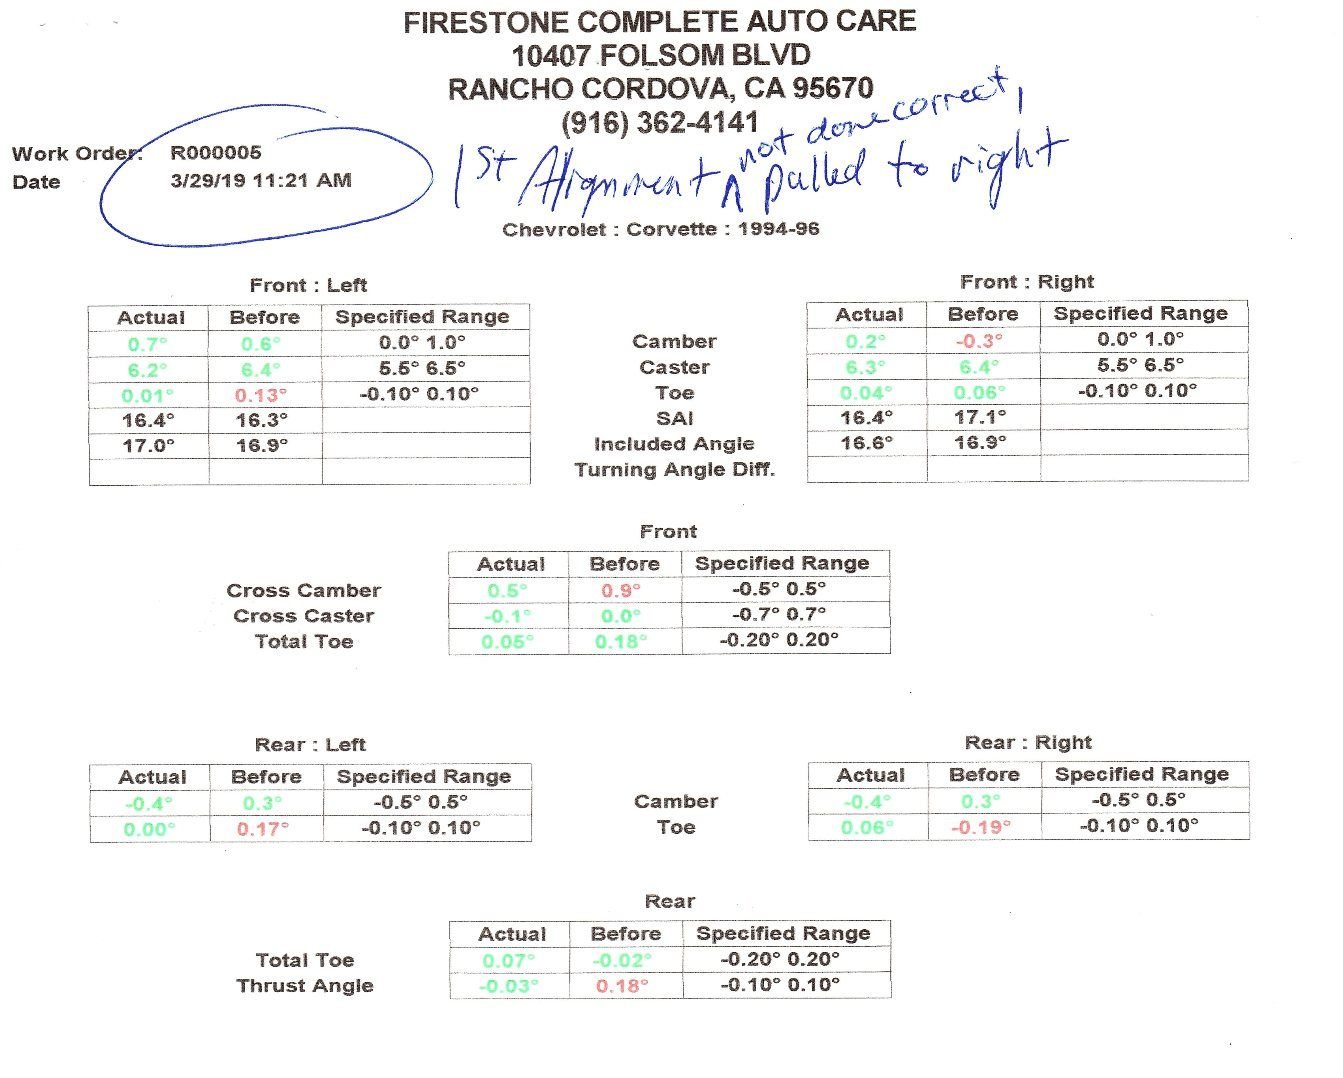 FIRESTONE COMPLETE AUTO CARE
10407 FOLSOM BLVD
RANCHO CORDOVA, CA 95670
(916) 362-4141
Work Order: R000005
Date 3/29/19 11:21 AM
1st Alignment ^ not done correct, pulled to right
Chevrolet : Corvette : 1994-96
Front : Left
Actual Before Specified Range
0.7° 0.6° 0.0° 1.0°
6.2° 6.4° 5.5° 6.5°
0.01° 0.13° -0.10° 0.10°
16.4° 16.3°
17.0° 16.9°
Camber
Caster
Toe
SAI
Included Angle
Turning Angle Diff.
Front : Right
Actual Before Specified Range
0.2° -0.3° 0.0° 1.0°
6.3° 6.4° 5.5° 6.5°
0.04° 0.06° -0.10° 0.10°
16.4° 17.1°
16.6° 16.9°
Front
Actual Before Specified Range
Cross Camber 0.5° 0.9° -0.5° 0.5°
Cross Caster -0.1° 0.0° -0.7° 0.7°
Total Toe 0.05° 0.18° -0.20° 0.20°
Rear : Left
Actual Before Specified Range
-0.4° 0.3° -0.5° 0.5°
0.00° 0.17° -0.10° 0.10°
Camber
Toe
Rear : Right
Actual Before Specified Range
-0.4° 0.3° -0.5° 0.5°
0.06° -0.19° -0.10° 0.10°
Rear
Actual Before Specified Range
Total Toe 0.07° -0.02° -0.20° 0.20°
Thrust Angle -0.03° 0.18° -0.10° 0.10°